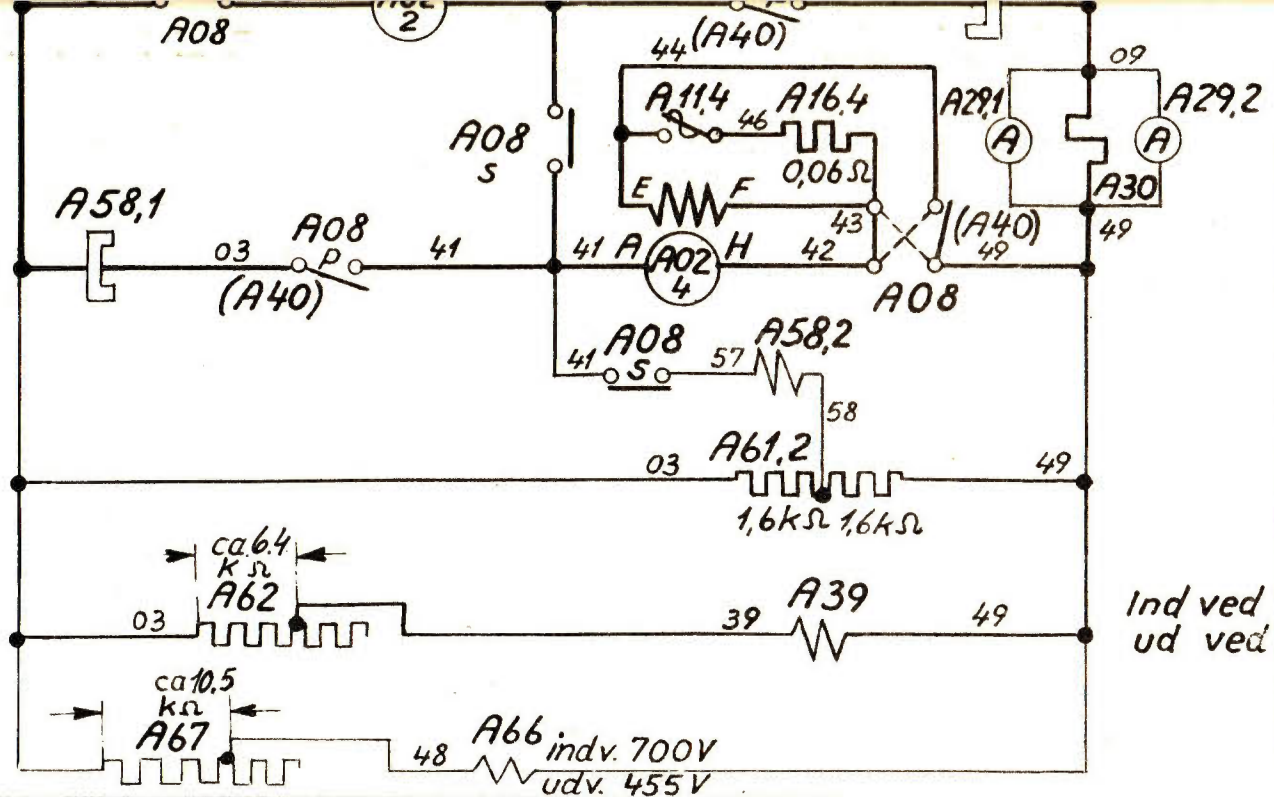 A08
2
(A40)
44
09
A11.4
46
A16.4
0,06 Ω
A29,1
A
A
A29,2
A08
s
E
F
A30
A58,1
03
A08
p
(A40)
41
41
A
A02
4
H
42
43
(A40)
49
49
A08
41
A08
s
57
A58,2
58
03
A61,2
49
1,6kΩ
1,6kΩ
ca.6.4
k Ω
A62
03
39
A39
49
Ind ved
ud ved
ca 10,5
kΩ
A67
48
A66
indv. 700V
udv. 455V